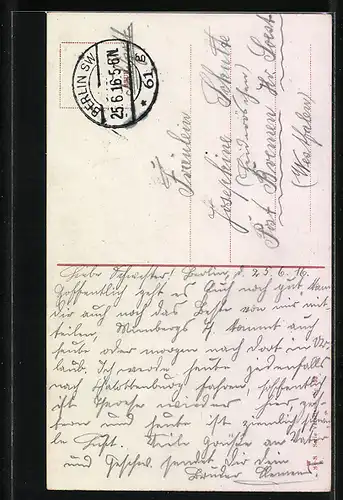 BERLIN SW
25.6.16.5-6N.
* 61 g
Fräulein
Josephine Schulte
Post Bremen Kr. Soest
(Westfalen)
Liebe Schwester! Berlin, d. 25.6.16.
Hoffentlich geht es Euch noch gut kann
Dir auch noch das Beste von mir mit-
teilen, kommt auch
heute oder morgen nach dort in Ur-
laub. Ich werde heute jedenfalls
nach Charlottenburg fahren, hoffentlich
ist wieder hier, ges-
tern und heute ist ziemlich schwü-
le Luft. Viele Grüße an Vater
und Geschw. sendet Dir Dein
Bruder Clemens